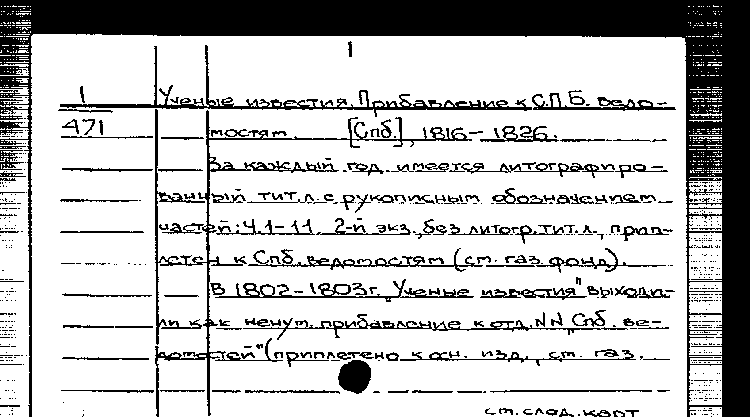 1
1 Ученые известия. Прибавление к С.П.Б. ведо-
471 мостям. [Спб.], 1816-1826.
За каждый год имеется литографиро-
ванный тит.л. с рукописным обозначением
частей: Ч.1-11. 2-й экз., без литогр. тит.л., прип-
летен к Спб. ведомостям (см. газ. фонд).
В 1802-1803г. "Ученые известия" выходи-
ли как ненум. прибавление к отд. NN "Спб. ве-
домостей" (приплетено к осн. изд., см. газ.
см. след. карт